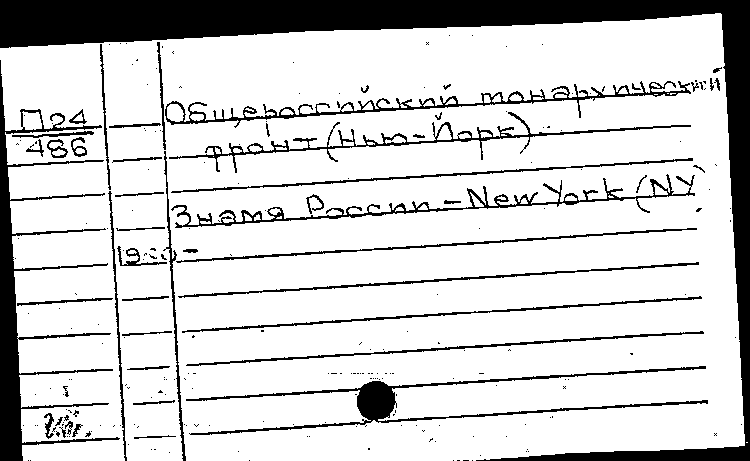 П24
486
Общероссийский монархический
фронт (Нью-Йорк)
Знамя России - New York (NY)